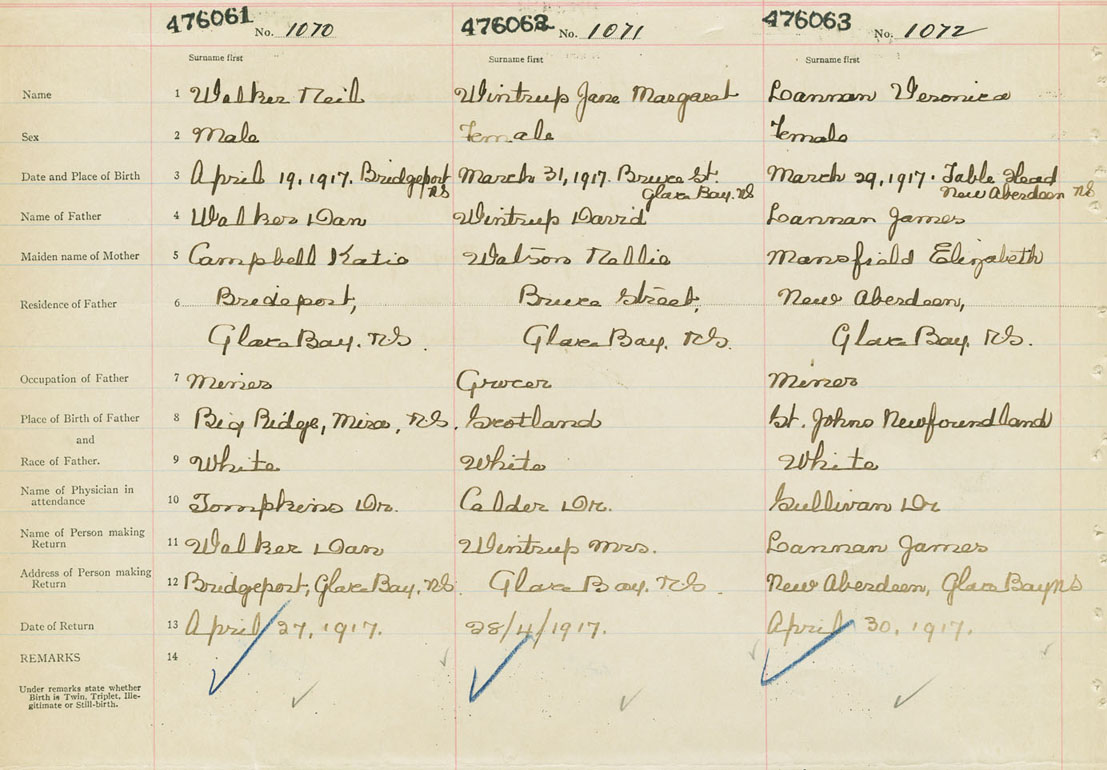 476061 No. 1070 476062 No. 1071 476063 No. 1072
Surname first Surname first Surname first
Name 1 Walker Neil Wintrup Jane Margaret Lannan Veronica
Sex 2 Male Female Female
Date and Place of Birth 3 April 19, 1917. Bridgeport March 31, 1917. Bruce St. March 29, 1917. Table Head
NS Glace Bay. NS New Aberdeen NS
Name of Father 4 Walker Dan Wintrup David Lannan James
Maiden name of Mother 5 Campbell Katie Watson Nellie Mansfield Elizabeth
Residence of Father 6 Brideport, Bruce Street, New Aberdeen,
Glace Bay. N.S. Glace Bay. N.S. Glace Bay. N.S.
Occupation of Father 7 Miner Grocer Miner
Place of Birth of Father 8 Big Ridge, Mira, N.S. Scotland St. Johns Newfoundland
and
Race of Father. 9 White White White
Name of Physician in
attendance 10 Tompkins Dr. Calder Dr. Sullivan Dr
Name of Person making
Return 11 Walker Dan Wintrup Mrs. Lannan James
Address of Person making
Return 12 Bridgeport, Glace Bay, N.S. Glace Bay. N.S. New Aberdeen, Glace Bay NS
Date of Return 13 April 27, 1917. 28/4/1917. April 30, 1917.
REMARKS 14
Under remarks state whether
Birth is Twin, Triplet, Ille-
gitimate or Still-birth.